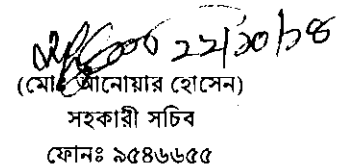 ২২/১০/১৪
(মোঃ আনোয়ার হোসেন)
সহকারী সচিব
ফোনঃ ৯৫৪৬৬৫৫